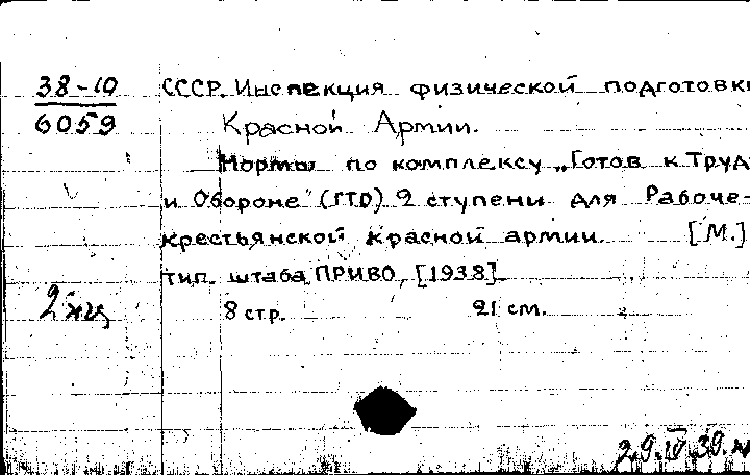 38-10
6059
СССР. Инспекция физической подготовки
Красной Армии.
Нормы по комплексу „Готов к Труд
и Обороне" (ГТО) 2 ступени для Рабоче-
крестьянской красной армии. [М.]
тип. штаба ПРИВО, [1938]
8 стр. 21 см.
2 экз